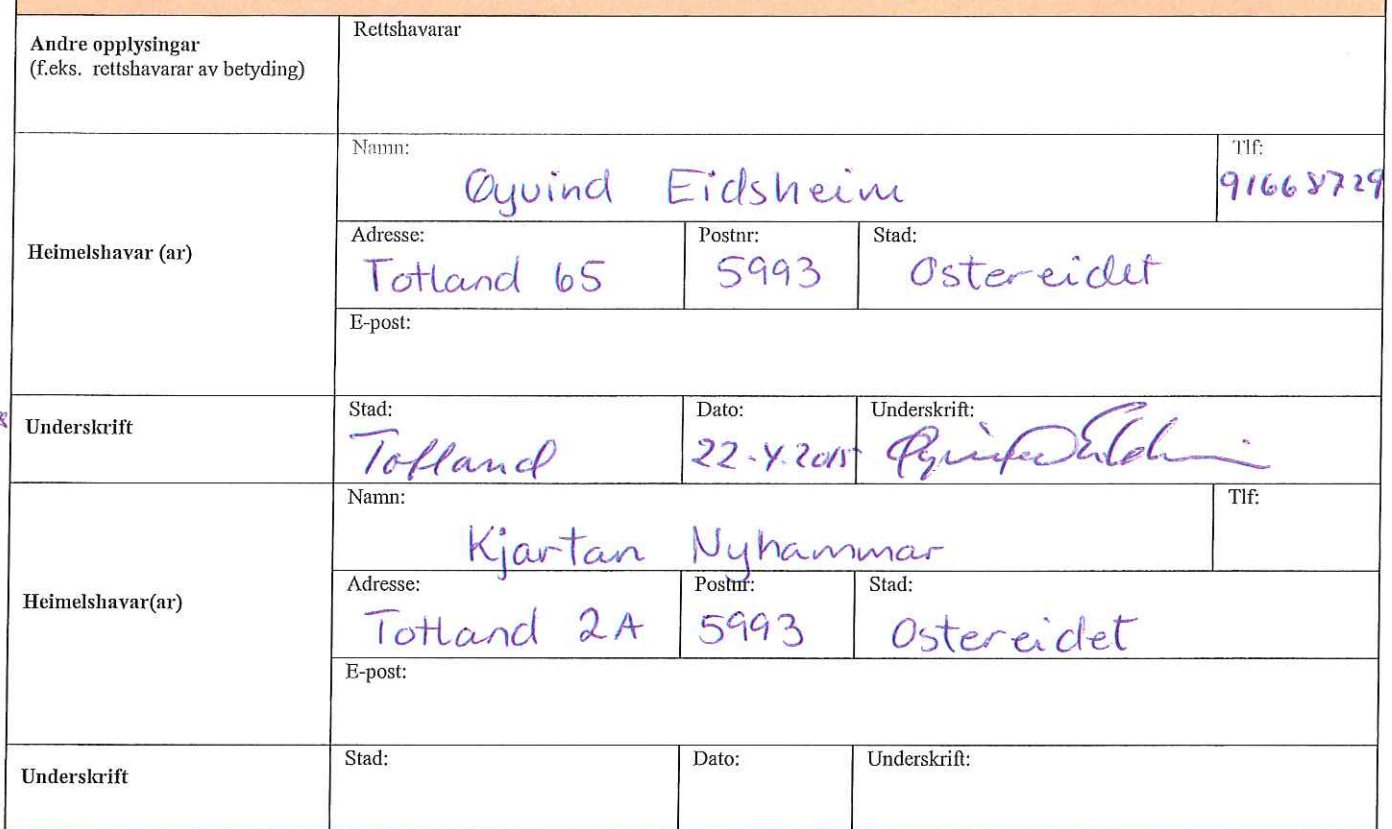 Andre opplysingar
(f.eks. rettshavarar av betyding)
Rettshavarar
Heimelshavar (ar)
Namn:
Øyvind Eidsheim
Tlf:
91668729
Adresse:
Totland 65
Postnr:
5993
Stad:
Ostereidet
E-post:
Underskrift
Stad:
Totland
Dato:
22.4.2015
Underskrift:
Heimelshavar(ar)
Namn:
Kjartan Nyhammar
Tlf:
Adresse:
Totland 2A
Postnr:
5993
Stad:
Ostereidet
E-post:
Underskrift
Stad:
Dato:
Underskrift: